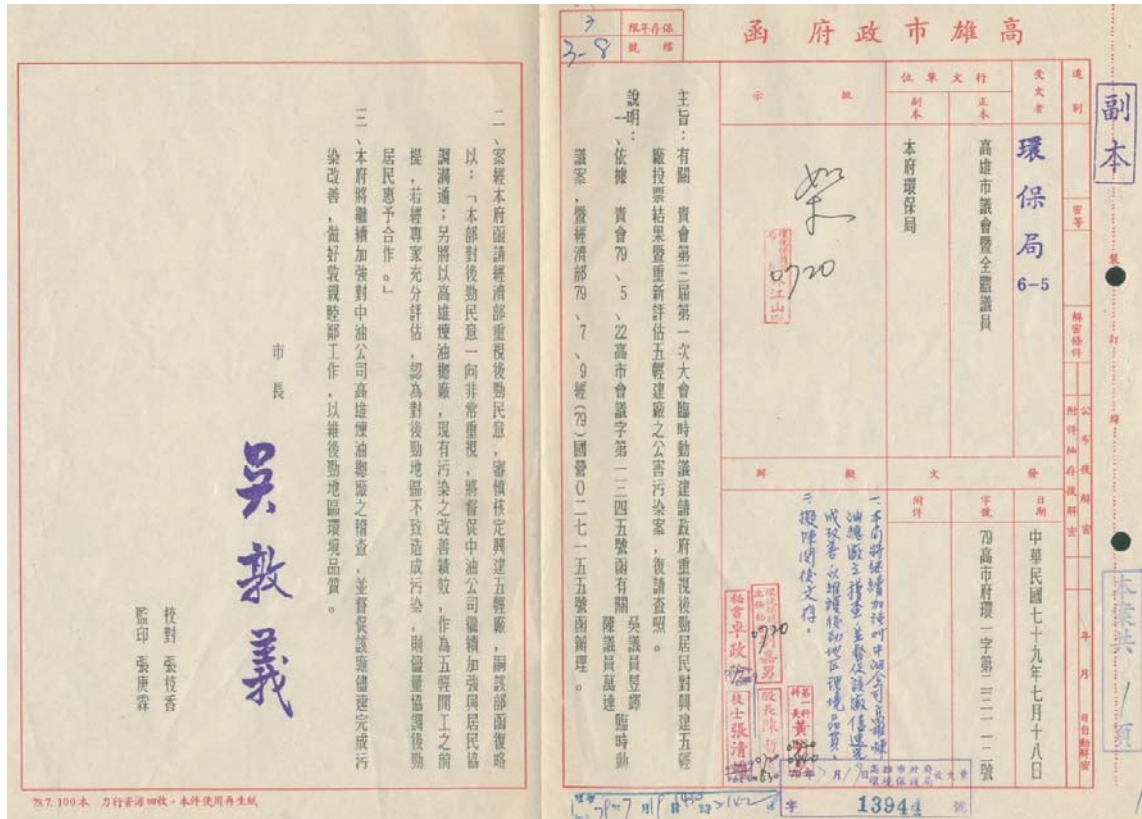 高雄市政府函
保存年限
3
檔號
3-8
副本
速別
密等
解密條件
公布後解密
附件抽存後解密
年 月 日自動解密
受文者
環保局
6-5
行文單位
正本
高雄市議會暨全體議員
副本
本府環保局
發文
日期
中華民國七十九年七月十八日
字號
79高市府環一字第二三一一二號
附件
批示
如
0720
擬辦
一、本局將繼續加強對中油公司高雄煉
油總廠之稽查,並督促該廠儘速完
成改善,以維護後勁地區環境品質。
二、擬陳閱後文存。
主旨:有關 貴會第三屆第一次大會臨時動議建請政府重視後勁居民對興建五輕
廠投票結果暨重新評估五輕建廠之公害污染案,復請查照。
說明:
一、依據 貴會79、5、22高市會議字第一三四五號函有關 吳議員昱鐸 陳議員萬達 臨時動
議案,暨經濟部79、7、9經(79)國營0二七一五五號函辦理。
二、案經本府函請經濟部重視後勁民意,審慎核定興建五輕廠,嗣該部函復略
以:「本部對後勁民意一向非常重視,將督促中油公司繼續加強與居民協
調溝通;另將以高雄煉油總廠,現有污染之改善績效,作為五輕開工之前
提,若經專家充分評估,認為對後勁地區不致造成污染,則儘量協調後勁
居民惠予合作。」
三、本府將繼續加強對中油公司高雄煉油總廠之稽查,並督促該廠儘速完成污
染改善,做好敦親睦鄰工作,以維後勁地區環境品質。
市長 吳敦義
校對 張枝香
監印 張庚霖
裝
訂
線
本案共1頁
秘書卓政
技士張清
股長陳哲
第一科科長黃
高雄市政府環境保護局收文章
字 13944 號
79.7. 100本 力行資源回收,本件使用再生紙